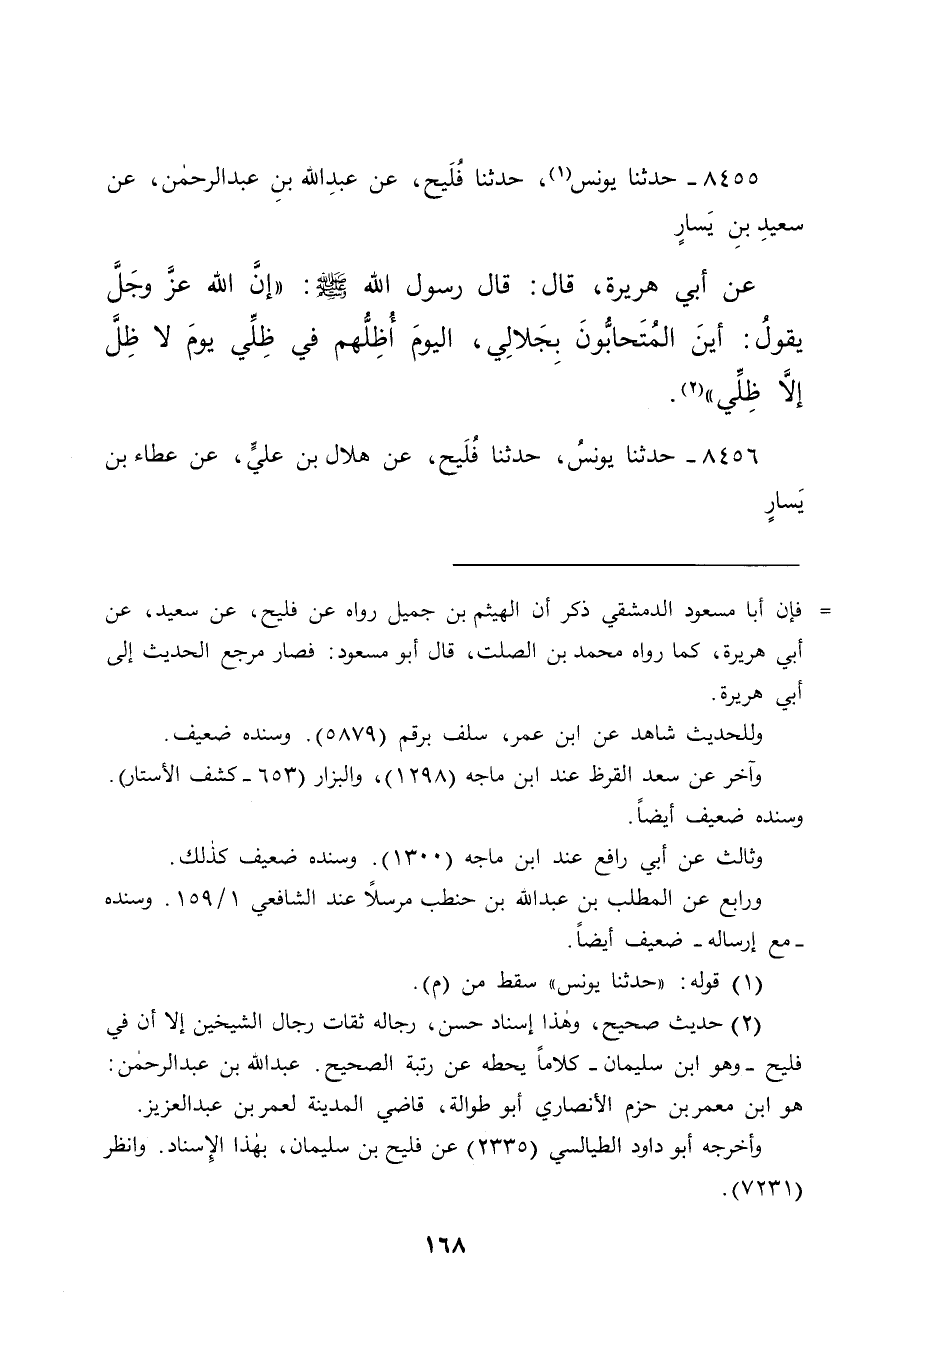 ٨٤٥٥ ـ حدثنا يونس(١)، حدثنا فُلَيح، عن عبدِالله بنِ عبدالرحمٰن، عن
سعيدِ بنِ يَسارٍ
عن أبي هريرة، قال: قال رسول الله ﷺ: «إنَّ الله عزَّ وجَلَّ
يقولُ: أينَ المُتَحابُّونَ بِجَلالِي، اليومَ أُظِلُّهم في ظِلِّي يومَ لا ظِلَّ
إلَّا ظِلِّي»(٢).
٨٤٥٦ ـ حدثنا يونسُ، حدثنا فُلَيح، عن هلال بن عليٍّ، عن عطاء بن
يَسارٍ
= فإن أبا مسعود الدمشقي ذكر أن الهيثم بن جميل رواه عن فليح، عن سعيد، عن
أبي هريرة، كما رواه محمد بن الصلت، قال أبو مسعود: فصار مرجع الحديث إلى
أبي هريرة.
وللحديث شاهد عن ابن عمر، سلف برقم (٥٨٧٩). وسنده ضعيف.
وآخر عن سعد القرظ عند ابن ماجه (١٢٩٨)، والبزار (٦٥٣ ـ كشف الأستار).
وسنده ضعيف أيضاً.
وثالث عن أبي رافع عند ابن ماجه (١٣٠٠). وسنده ضعيف كذٰلك.
ورابع عن المطلب بن عبدالله بن حنطب مرسلاً عند الشافعي ١/١٥٩. وسنده
ـ مع إرساله ـ ضعيف أيضاً.
(١) قوله: «حدثنا يونس» سقط من (م).
(٢) حديث صحيح، وهٰذا إسناد حسن، رجاله ثقات رجال الشيخين إلا أن في
فليح ـ وهو ابن سليمان ـ كلاماً يحطه عن رتبة الصحيح. عبدالله بن عبدالرحمٰن:
هو ابن معمر بن حزم الأنصاري أبو طوالة، قاضي المدينة لعمر بن عبدالعزيز.
وأخرجه أبو داود الطيالسي (٢٣٣٥) عن فليح بن سليمان، بهٰذا الإسناد. وانظر
(٧٢٣١).
١٦٨